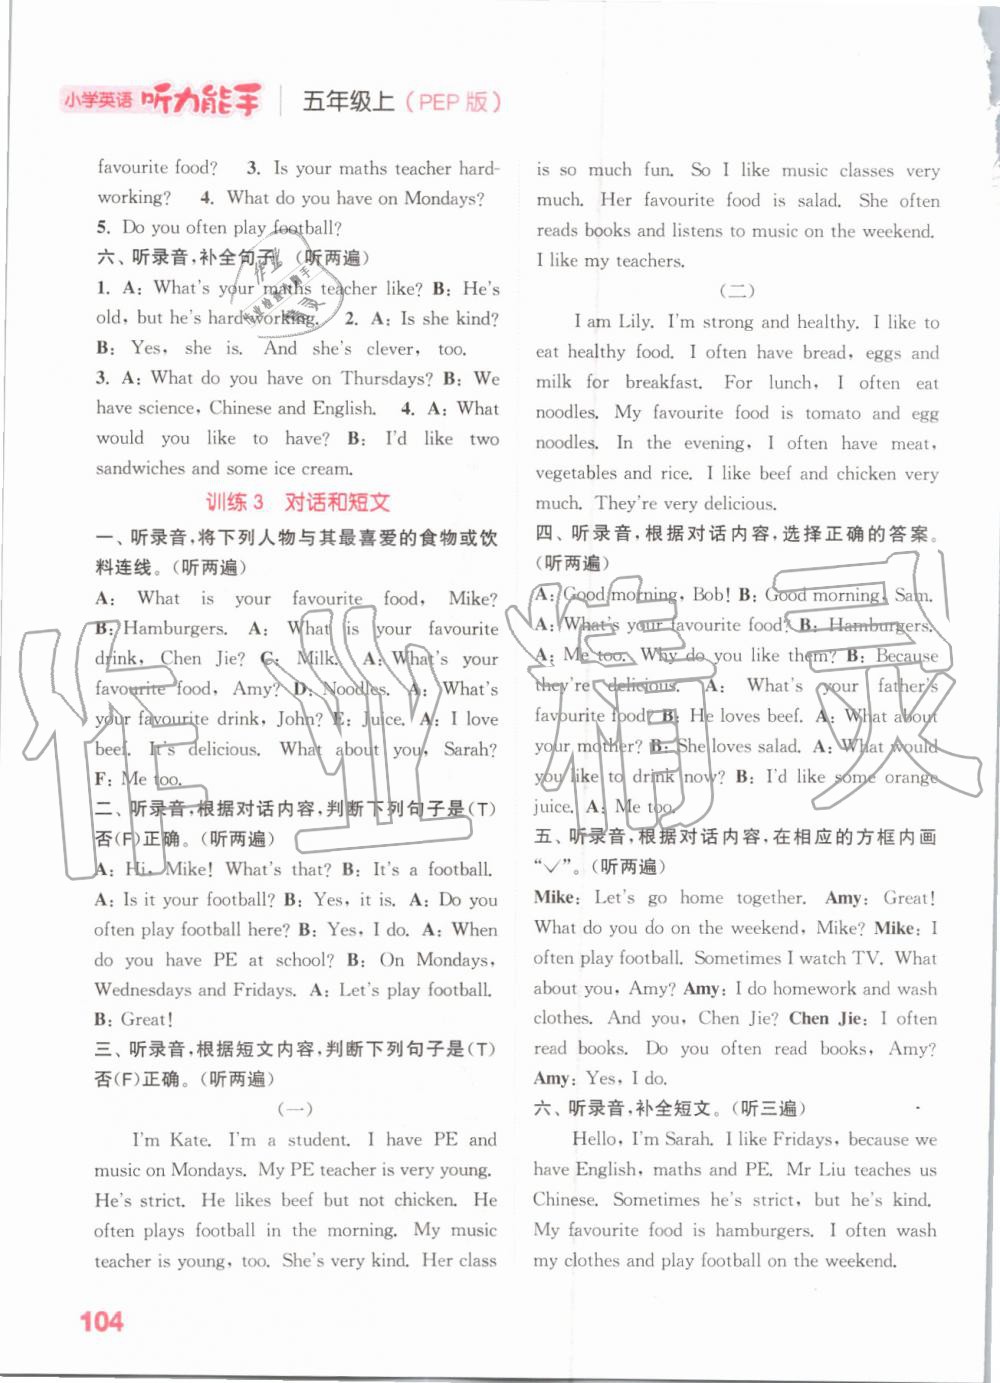 小学英语 听力能手 五年级上(PEP 版)
favourite food? 3. Is your maths teacher hard-
working? 4. What do you have on Mondays?
5. Do you often play football?
六、听录音,补全句子。(听两遍)
1. A: What's your maths teacher like? B: He's
old, but he's hard-working. 2. A: Is she kind?
B: Yes, she is. And she's clever, too.
3. A: What do you have on Thursdays? B: We
have science, Chinese and English. 4. A: What
would you like to have? B: I'd like two
sandwiches and some ice cream.
训练 3 对话和短文
一、听录音,将下列人物与其最喜爱的食物或饮
料连线。(听两遍)
A: What is your favourite food, Mike?
B: Hamburgers. A: What is your favourite
drink, Chen Jie? C: Milk. A: What's your
favourite food, Amy? D: Noodles. A: What's
your favourite drink, John? E: Juice. A: I love
beef. It's delicious. What about you, Sarah?
F: Me too.
二、听录音,根据对话内容,判断下列句子是(T)
否(F)正确。(听两遍)
A: Hi, Mike! What's that? B: It's a football.
A: Is it your football? B: Yes, it is. A: Do you
often play football here? B: Yes, I do. A: When
do you have PE at school? B: On Mondays,
Wednesdays and Fridays. A: Let's play football.
B: Great!
三、听录音,根据短文内容,判断下列句子是(T)
否(F)正确。(听两遍)
(一)
I'm Kate. I'm a student. I have PE and
music on Mondays. My PE teacher is very young.
He's strict. He likes beef but not chicken. He
often plays football in the morning. My music
teacher is young, too. She's very kind. Her class
is so much fun. So I like music classes very
much. Her favourite food is salad. She often
reads books and listens to music on the weekend.
I like my teachers.
(二)
I am Lily. I'm strong and healthy. I like to
eat healthy food. I often have bread, eggs and
milk for breakfast. For lunch, I often eat
noodles. My favourite food is tomato and egg
noodles. In the evening, I often have meat,
vegetables and rice. I like beef and chicken very
much. They're very delicious.
四、听录音,根据对话内容,选择正确的答案。
(听两遍)
A: Good morning, Bob! B: Good morning, Sam.
A: What's your favourite food? B: Hamburgers.
A: Me too. Why do you like them? B: Because
they're delicious. A: What's your father's
favourite food? B: He loves beef. A: What about
your mother? B: She loves salad. A: What would
you like to drink now? B: I'd like some orange
juice. A: Me too.
五、听录音,根据对话内容,在相应的方框内画
“√”。(听两遍)
Mike: Let's go home together. Amy: Great!
What do you do on the weekend, Mike? Mike: I
often play football. Sometimes I watch TV. What
about you, Amy? Amy: I do homework and wash
clothes. And you, Chen Jie? Chen Jie: I often
read books. Do you often read books, Amy?
Amy: Yes, I do.
六、听录音,补全短文。(听三遍)
Hello, I'm Sarah. I like Fridays, because we
have English, maths and PE. Mr Liu teaches us
Chinese. Sometimes he's strict, but he's kind.
My favourite food is hamburgers. I often wash
my clothes and play football on the weekend.
104
作业精灵